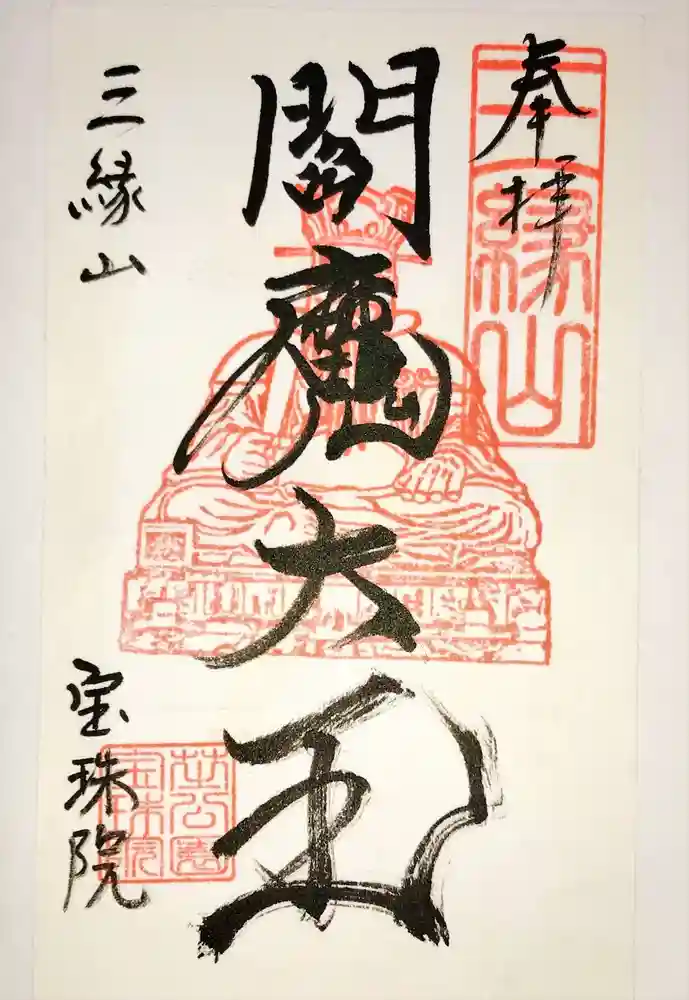 奉拝
三縁山
閻魔大王
三縁山
宝珠院
芝公園
宝珠院